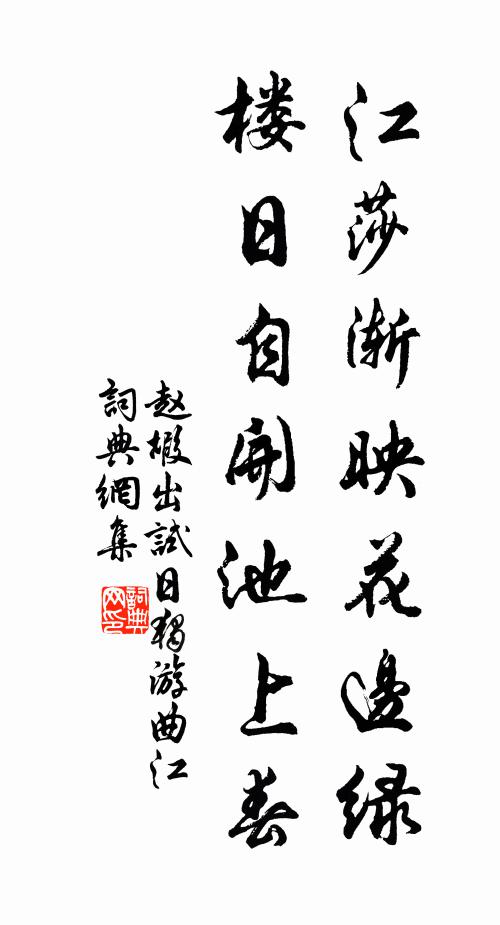 江莎渐映花邊緑
楼日自開池上春
赵嘏出試日獨游曲江
詞典網集
詞典网印